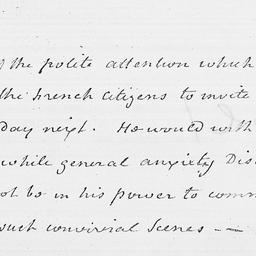 the polite attention which
the French Citizens to invite
day next. He would with
while general anxiety Dis
ot be in his power to comm
such convivial Scenes - —